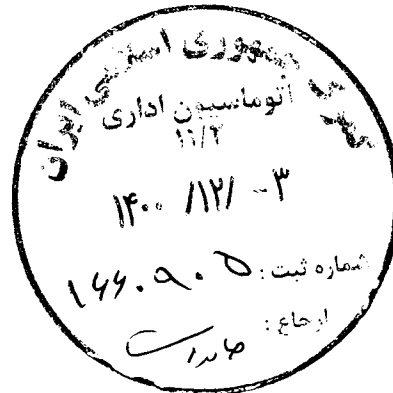 گمرک جمهوری اسلامی ایران
اتوماسیون اداری
۱۱/۲
۱۴۰۰ /۱۲/ -۳
شماره ثبت: ۱۶۶۰۹۰۵
ارجاع: